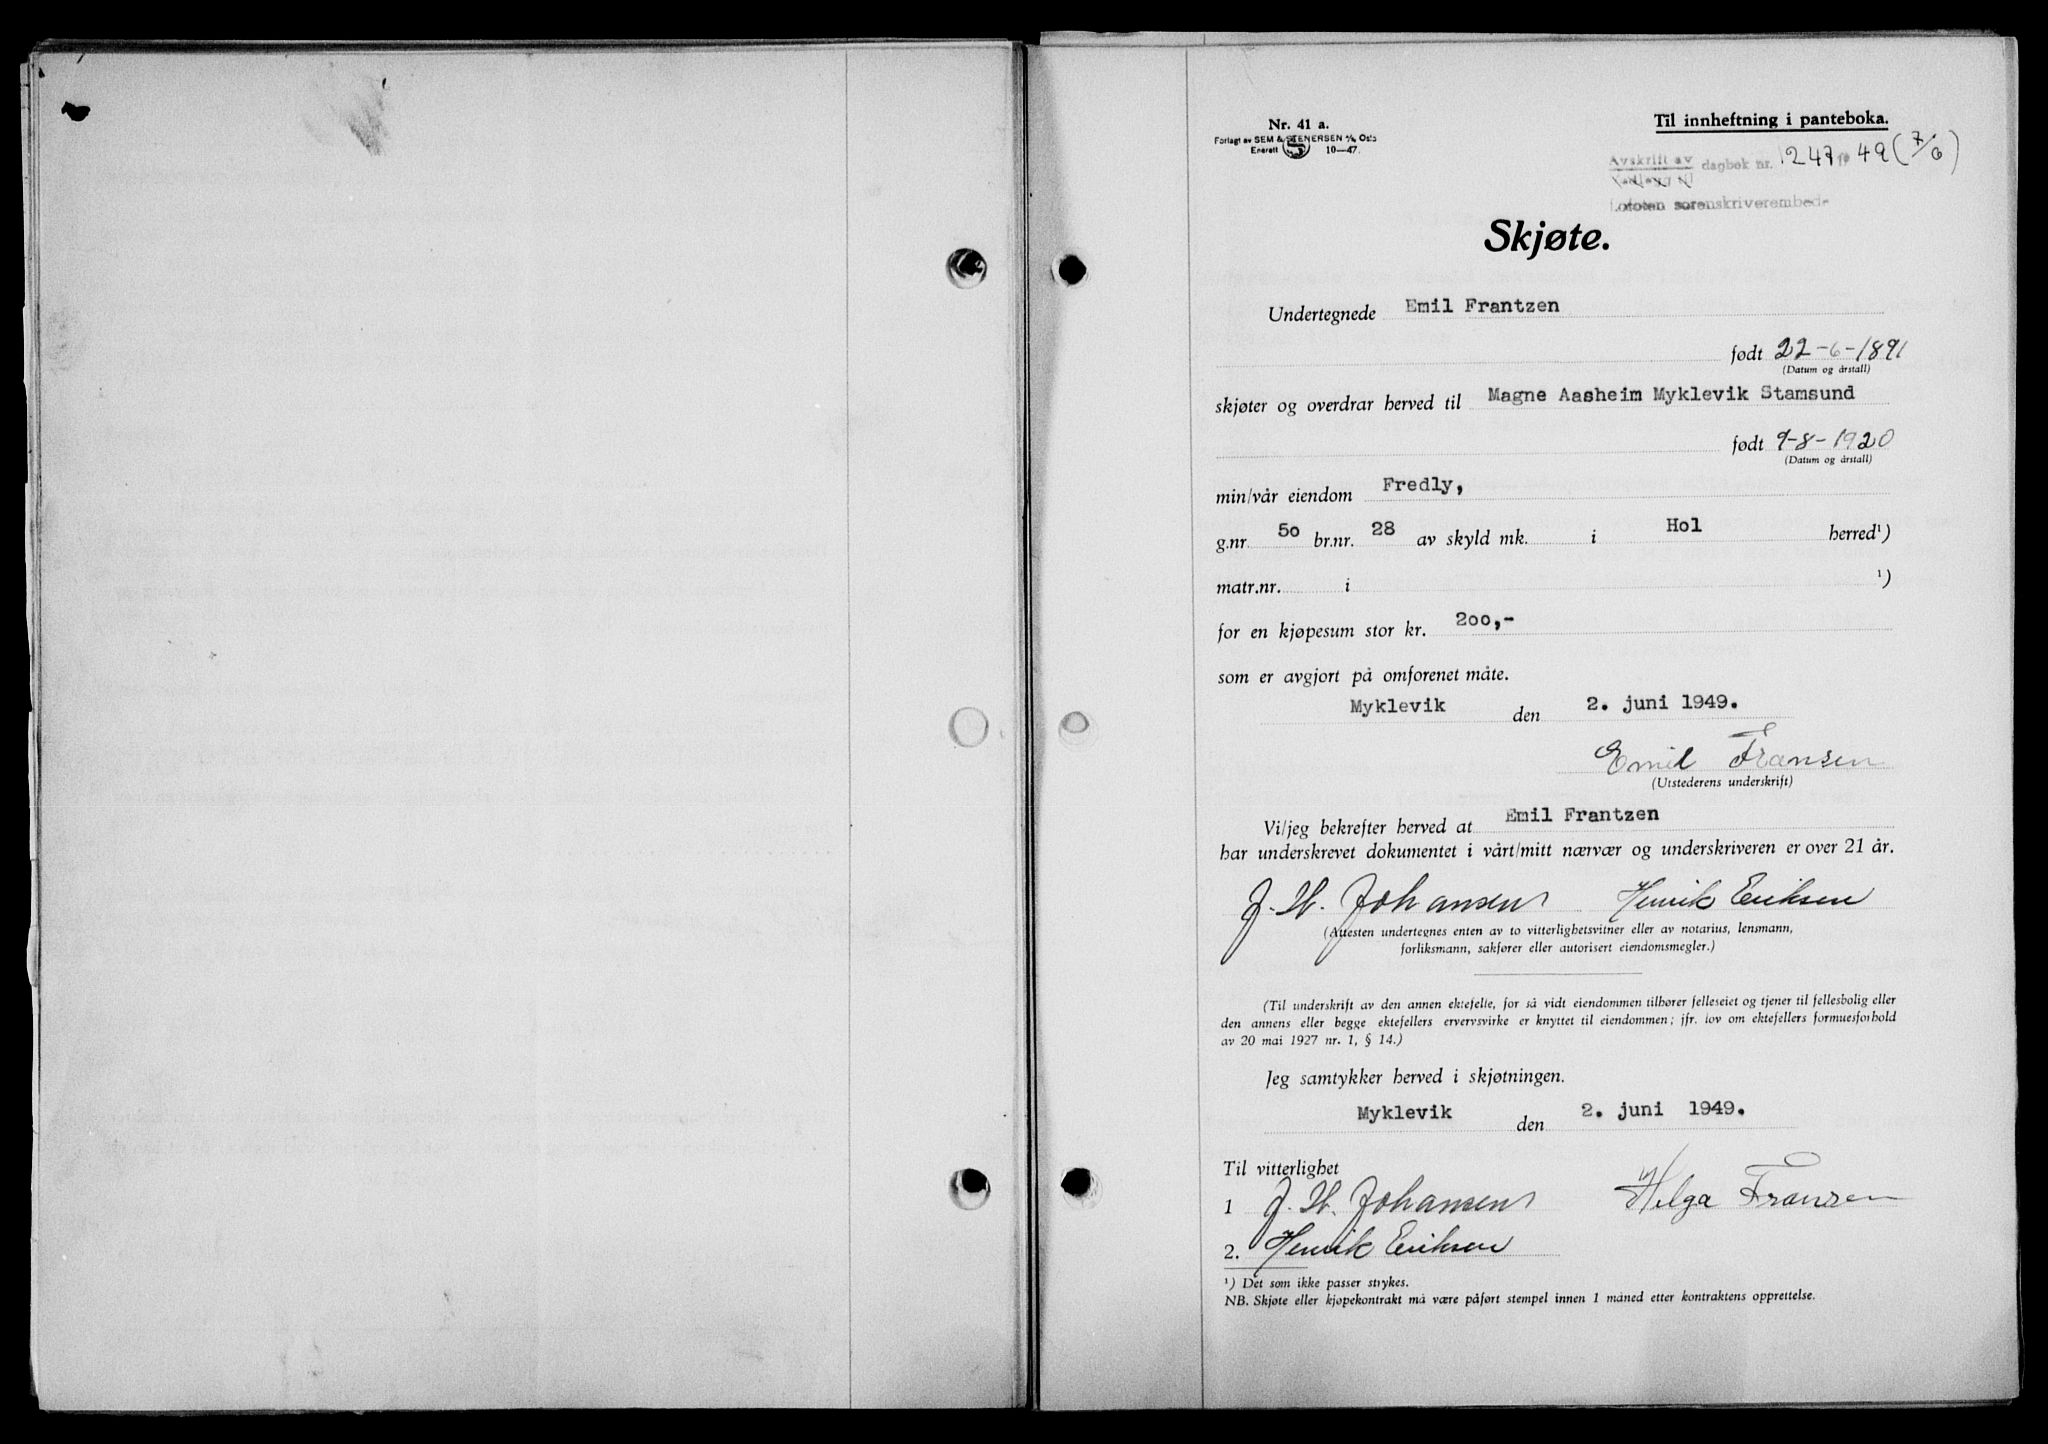 Nr. 41 a.
Forlagt av SEM & STENERSEN A/S Oslo
Enerett 10-47.
Til innheftning i panteboka.
Avskrift av dagbok nr. 1247 19 49 (7/6)
Lofoten sorenskriverembede
Skjøte.
Undertegnede Emil Frantzen
født 22-6-1891
(Datum og årstall)
skjøter og overdrar herved til Magne Aasheim Myklevik Stamsund
født 9-8-1920
(Datum og årstall)
min/vår eiendom Fredly,
g.nr. 50 br.nr. 28 av skyld mk. i Hol herred¹)
matr.nr. i ¹)
for en kjøpesum stor kr. 200,-
som er avgjort på omforenet måte.
Myklevik den 2. juni 1949.
Emil Fransen
(Utstederens underskrift)
Vi/jeg bekrefter herved at Emil Frantzen
har underskrevet dokumentet i vårt/mitt nærvær og underskriveren er over 21 år.
J. H. Johansen Henrik Eriksen
(Attesten undertegnes enten av to vitterlighetsvitner eller av notarius, lensmann,
forliksmann, sakfører eller autorisert eiendomsmegler.)
(Til underskrift av den annen ektefelle, for så vidt eiendommen tilhører felleseiet og tjener til fellesbolig eller
den annens eller begge ektefellers ervervsvirke er knyttet til eiendommen; jfr. lov om ektefellers formuesforhold
av 20 mai 1927 nr. 1, § 14.)
Jeg samtykker herved i skjøtningen.
Myklevik den 2. juni 1949.
Til vitterlighet
1 J. H. Johansen Helga Fransen
2. Henrik Eriksen
¹) Det som ikke passer strykes.
NB. Skjøte eller kjøpekontrakt må være påført stempel innen 1 måned etter kontraktens opprettelse.